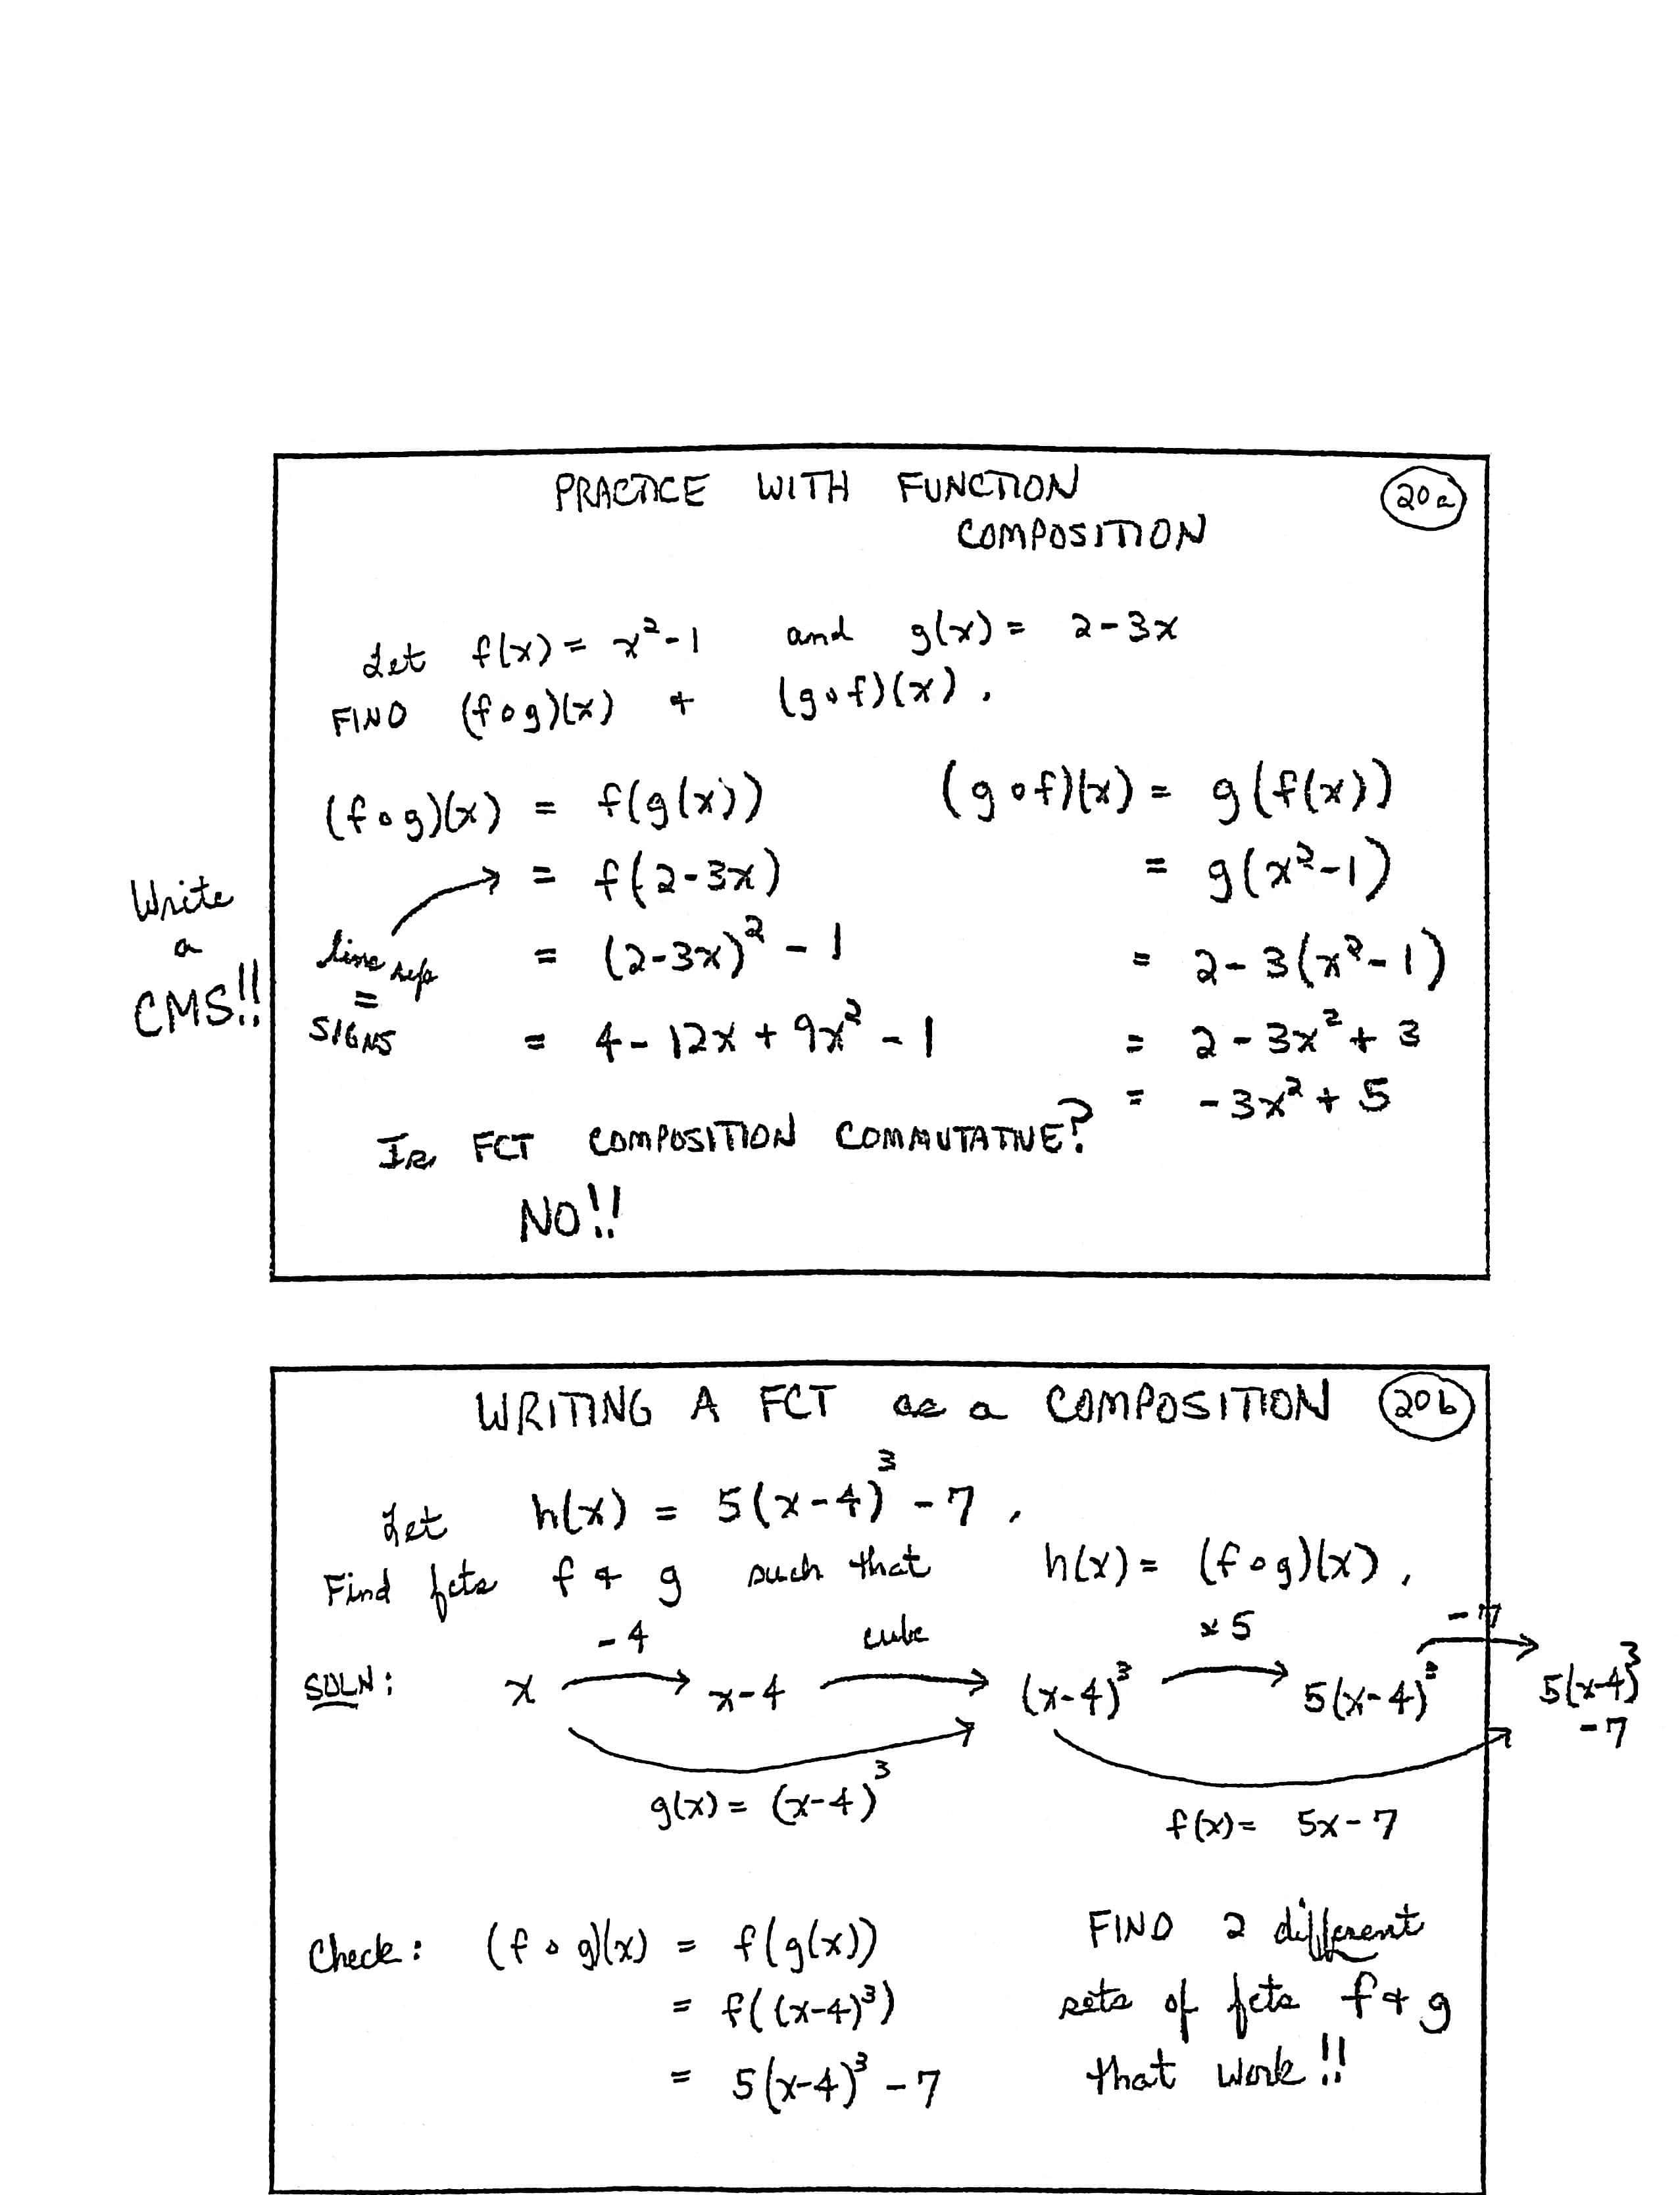 PRACTICE WITH FUNCTION 20a
COMPOSITION
Let f(x) = x² - 1 and g(x) = 2 - 3x
FIND (f∘g)(x) + (g∘f)(x).
(f∘g)(x) = f(g(x)) (g∘f)(x) = g(f(x))
= f(2-3x) = g(x²-1)
Write
a
CMS!!
line up
=
SIGNS
= (2-3x)² - 1 = 2 - 3(x²-1)
= 4 - 12x + 9x² - 1 = 2 - 3x² + 3
= -3x² + 5
Is FCT COMPOSITION COMMUTATIVE?
NO!!
WRITING A FCT as a COMPOSITION 20b
Let h(x) = 5(x-4)³ - 7.
Find fcts f + g such that h(x) = (f∘g)(x).
-4 cube × 5 -7
SOLN: x x-4 (x-4)³ 5(x-4)³ 5(x-4)³
-7
g(x) = (x-4)³ f(x) = 5x - 7
Check: (f∘g)(x) = f(g(x))
= f((x-4)³)
= 5(x-4)³ - 7
FIND 2 different
sets of fcts f + g
that work!!